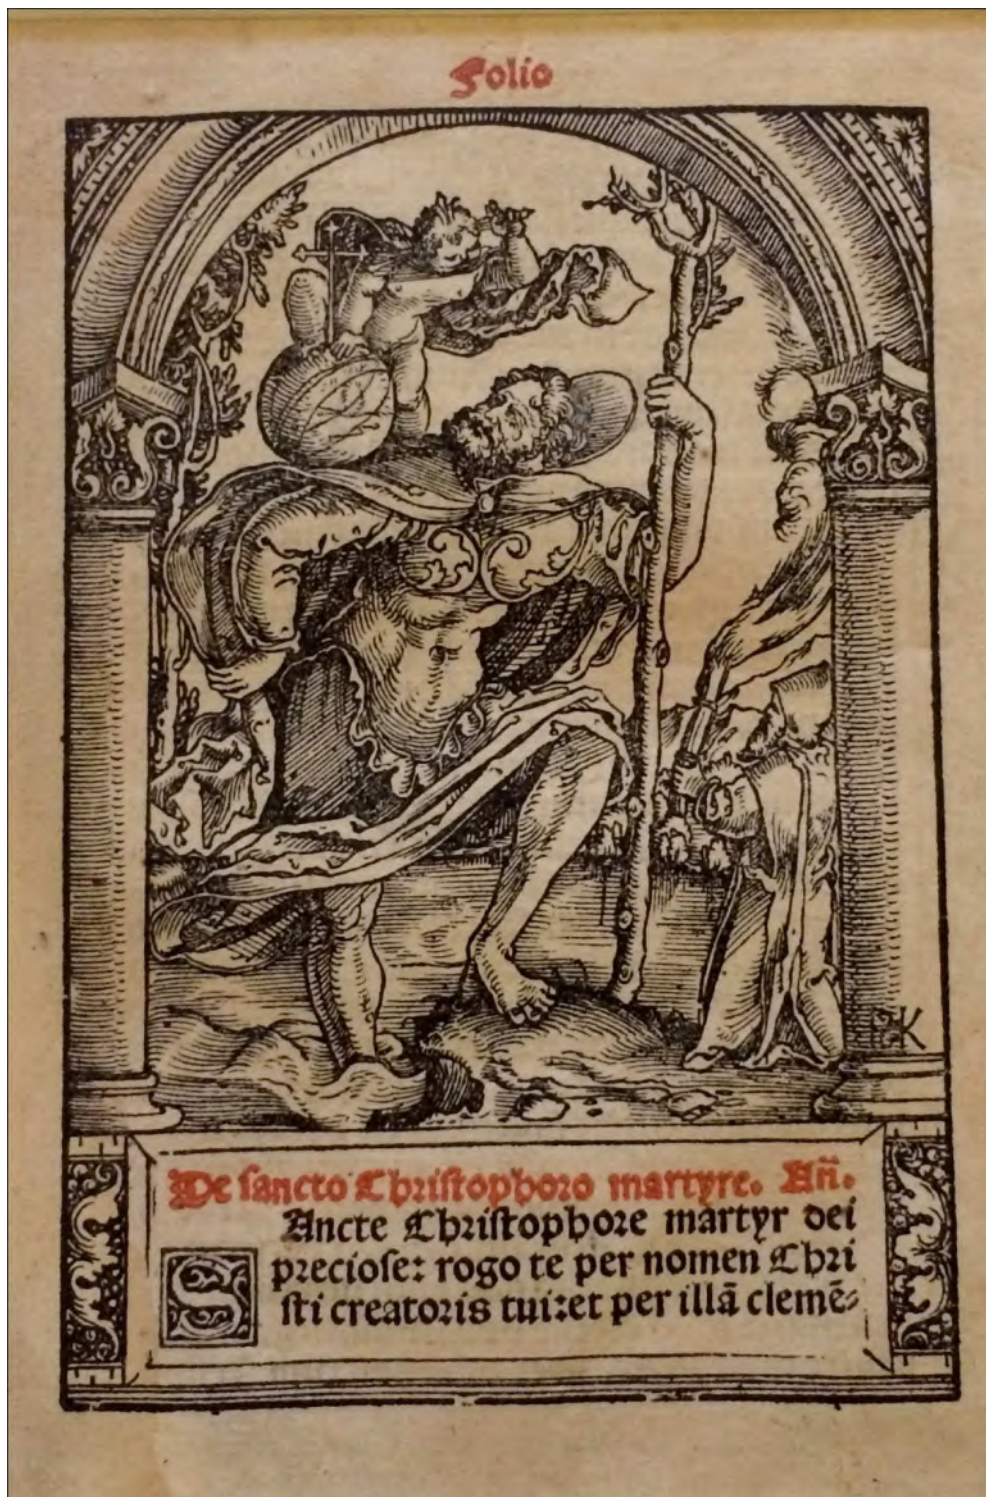 Folio
HK
De sancto Christophoro martyre. Añ.
SAncte Christophore martyr dei
preciose: rogo te per nomen Chri
sti creatoris tui: et per illã clemẽ⸗